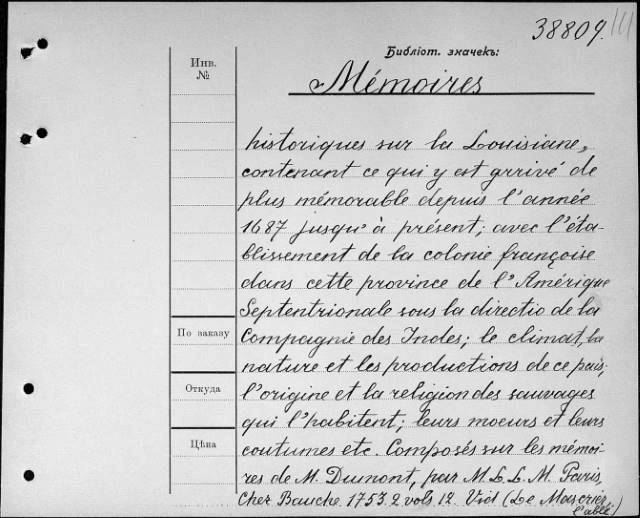 38809.
Библіот. значекъ:
Инв.
№
Mémoires
historiques sur la Louisiane,
contenant ce qui y est arrivé de
plus mémorable depuis l'année
1687 jusqu'à présent; avec l'éta-
blissement de la colonie françoise
dans cette province de l'Amérique
Septentrionale sous la directio de la
По заказу
Compagnie des Indes; le climat, la
nature et les productions de ce païs;
Откуда
l'origine et la religion des sauvages
qui l'habitent; leurs moeurs et leurs
Цѣна
coutumes etc. Composés sur les mémoi-
res de M. Dumont, par M. L. L. M. Paris,
Cher Bauche 1753. 2 vols. 12 (Le Mascrier,
l'abbé)